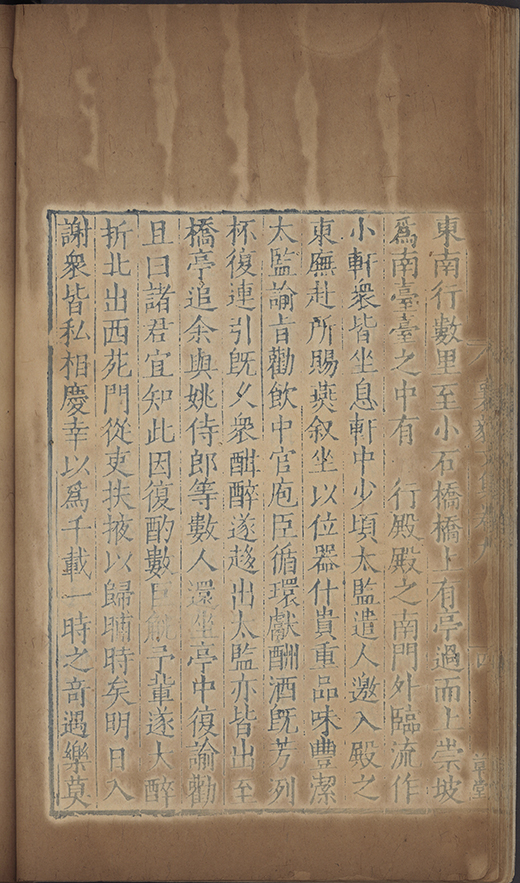 東南行數里至小石橋橋上有亭過而上崇坡
爲南臺臺之中有 行殿殿之南門外臨流作
小軒衆皆坐息軒中少頃太監遣人邀入殿之
東廡赴所賜燕叙坐以位器什貴重品味豐潔
太監諭旨勸飲中官庖臣循環獻酬酒旣芳列
杯復連引旣夕衆酣醉遂趍出太監亦皆出至
橋亭追余與姚侍郎等數人還坐亭中復諭勸
且曰諸君宜知此因復酌數巨觥予軰遂大醉
折北出西苑門從吏扶掖以歸晡時矣明日入
謝衆皆私相慶幸以爲千載一時之竒遇樂莫
草堂